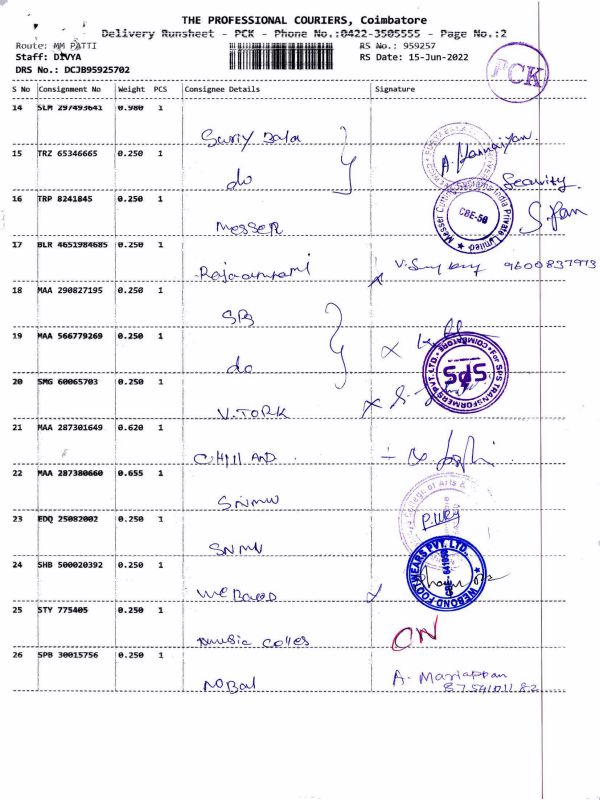 THE PROFESSIONAL COURIERS, Coimbatore
Delivery Runsheet - PCK - Phone No.:0422-3505555 - Page No.:2
Route: MM PATTI RS No.: 959257
Staff: DIVYA RS Date: 15-Jun-2022
DRS No.: DCJB95925702
PCK
S No Consignment No Weight PCS Consignee Details Signature
14 SLM 297493641 0.980 1
15 TRZ 65346665 0.250 1
do
Security
16 TRP 8241845 0.250 1
Messer
CBE-50
17 BLR 4651984685 0.250 1
9600837973
18 MAA 290827195 0.250 1
SPS
19 MAA 566779269 0.250 1
do
For SPS TRANSFORMERS PVT. LTD. COIMBATORE
SPS
20 SMG 60065703 0.250 1
V.TORK
21 MAA 287301649 0.620 1
22 MAA 287380660 0.655 1
SNMV
College of Arts &
23 EDQ 25082002 0.250 1
SNMV
WEBOND FOOTWEARS PVT. LTD.
24 SHB 500020392 0.250 1
25 STY 775405 0.250 1
ON
26 SPB 30015756 0.250 1
Nobal
A. Mariappan